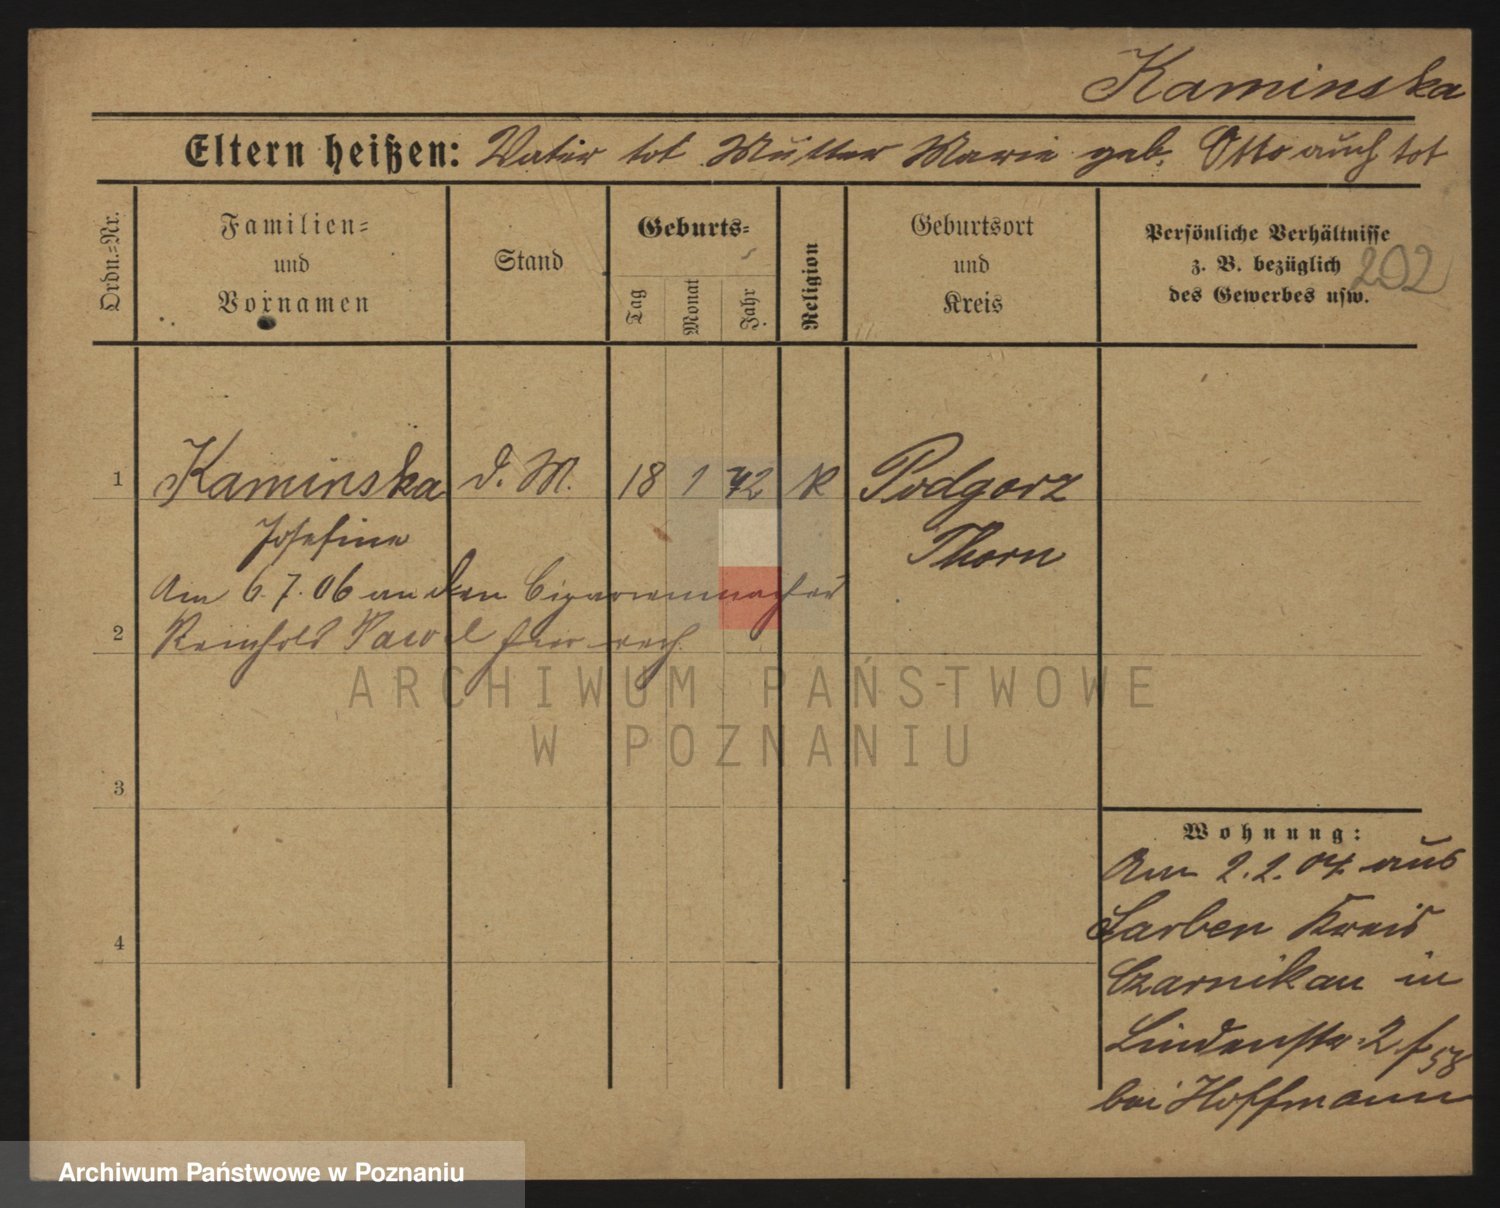 Kaminska
Eltern heißen: Vater tot Mutter Marie geb. Otto auch tot
Ordn.=Nr.
Familien=
und
Vornamen
Stand
Geburts=
Tag
Monat
Jahr
Religion
Geburtsort
und
Kreis
Persönliche Verhältnisse
z. B. bezüglich
des Gewerbes usw.
202
1 Kaminska d. M. 18 1 72 K Podgorz
Josefine Thorn
Am 6.7.06 an den Cigarrenmacher
2 Reinhold Pawel hier verh.
3
4
Wohnung:
Am 2.2.04 aus
Sarben Kreis
Czarnikau in
Lindenstr. 2
bei Hoffmann
ARCHIWUM PAŃSTWOWE
W POZNANIU
Archiwum Państwowe w Poznaniu